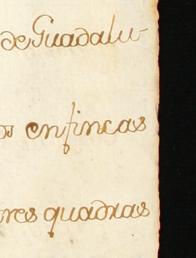 de Guadalu-
os enfincas
ores quadras